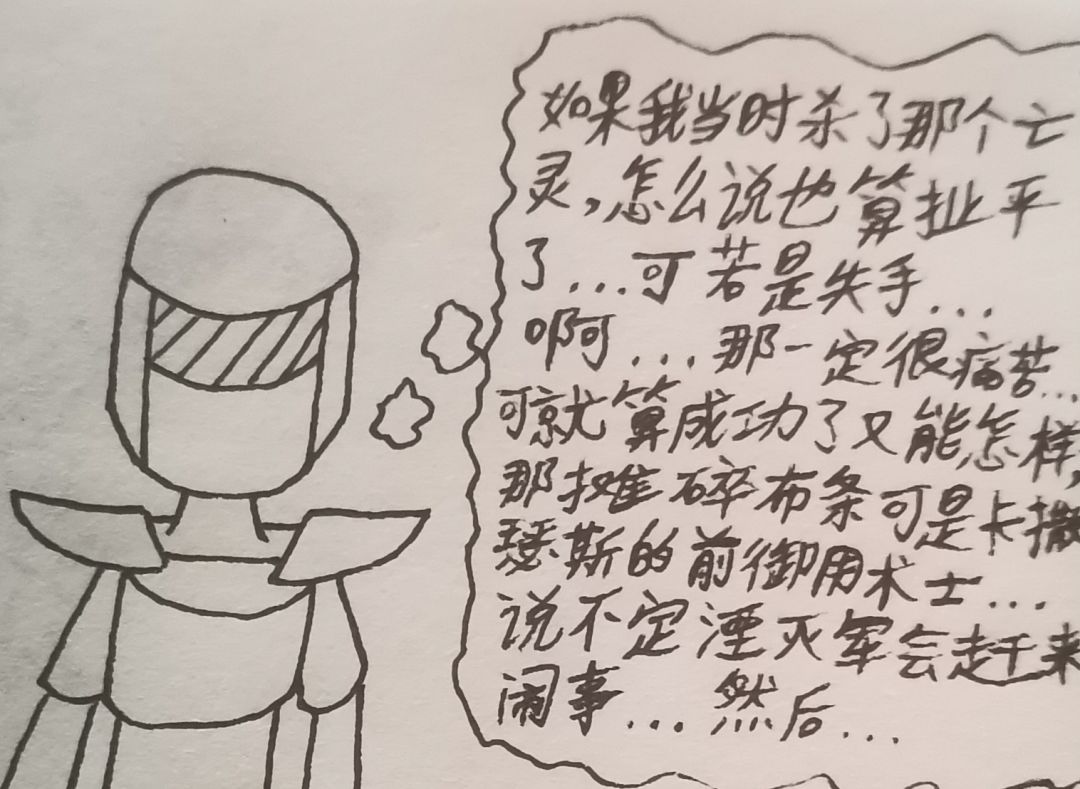 如果我当时杀了那个亡
灵,怎么说也算扯平
了...可若是失手...
啊...那一定很痛苦...
可就算成功了又能怎样,
那摊碎布条可是卡撒
瑟斯的前御用术士...
说不定湮灭军会赶来
闹事...然后...